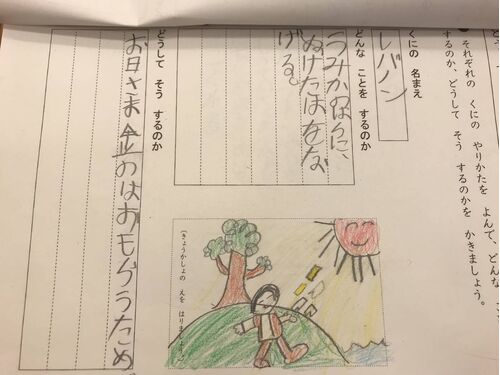 それぞれの くにの やりかたを よんで、どんな
するのか、どうして そう するのかを かきましょう。
くにの 名まえ
レバノン
どんな ことを するのか
うみかのはらに、
ぬけたはをなな
げる。
どうして そう するのか
お日さま金のはおもらうため
(きょうかしょの えを はりましょう。)